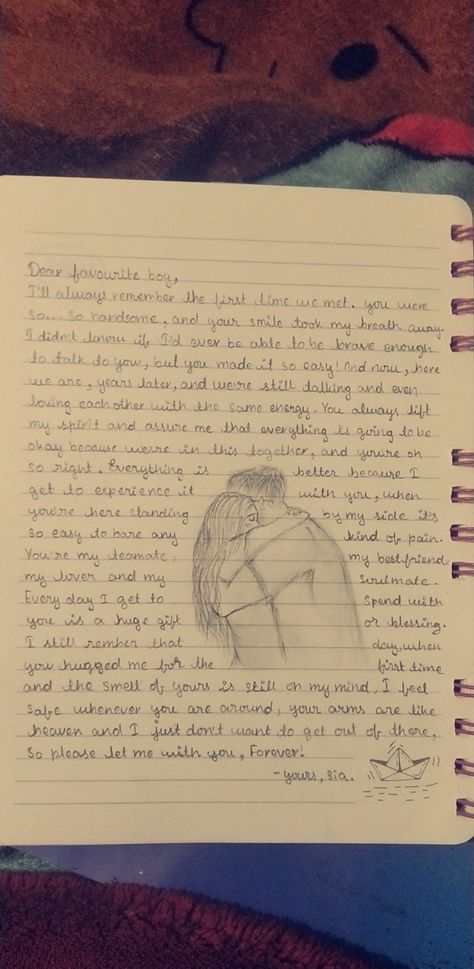 Dear favourite boy,
I'll always remember the first time we met. you were
so... so handsome, and your smile took my breath away.
I didn't know if I'd ever be able to be brave enough
to talk to you, but you made it so easy! And now, here
we are, years later, and we're still talking and even
loving each other with the same energy. You always lift
my spirit and assure me that everything is going to be
okay because we're in this together, and you're oh
so right. Everything is better because I
get to experience it with you, when
you're here standing by my side it's
so easy to bare any kind of pain.
You're my teamate, my bestfriend
my lover and my soulmate.
Every day I get to spend with
you is a huge gift or blessing.
I still rember that day, when
you hugged me for the first time
and the smell of yours is still on my mind, I feel
safe whenever you are around, your arms are like
heaven and I just don't want to get out of there,
so please let me with you, Forever!
-yours, sia.